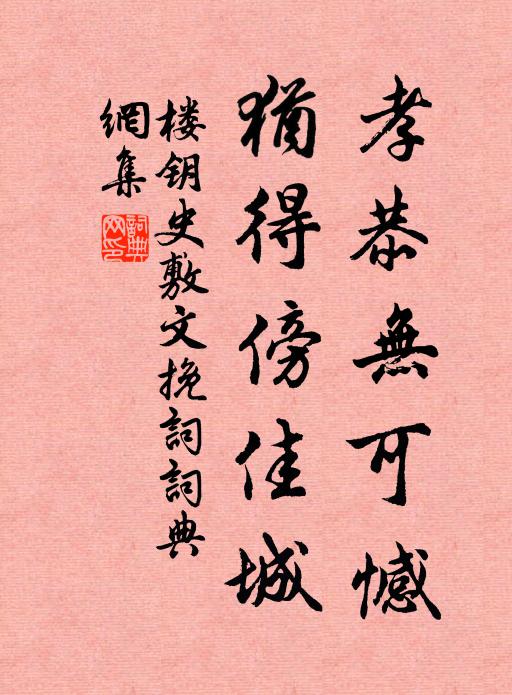 孝恭無可憾
猶得傍佳城
楼钥史敷文挽詞詞典
網集
詞典網印